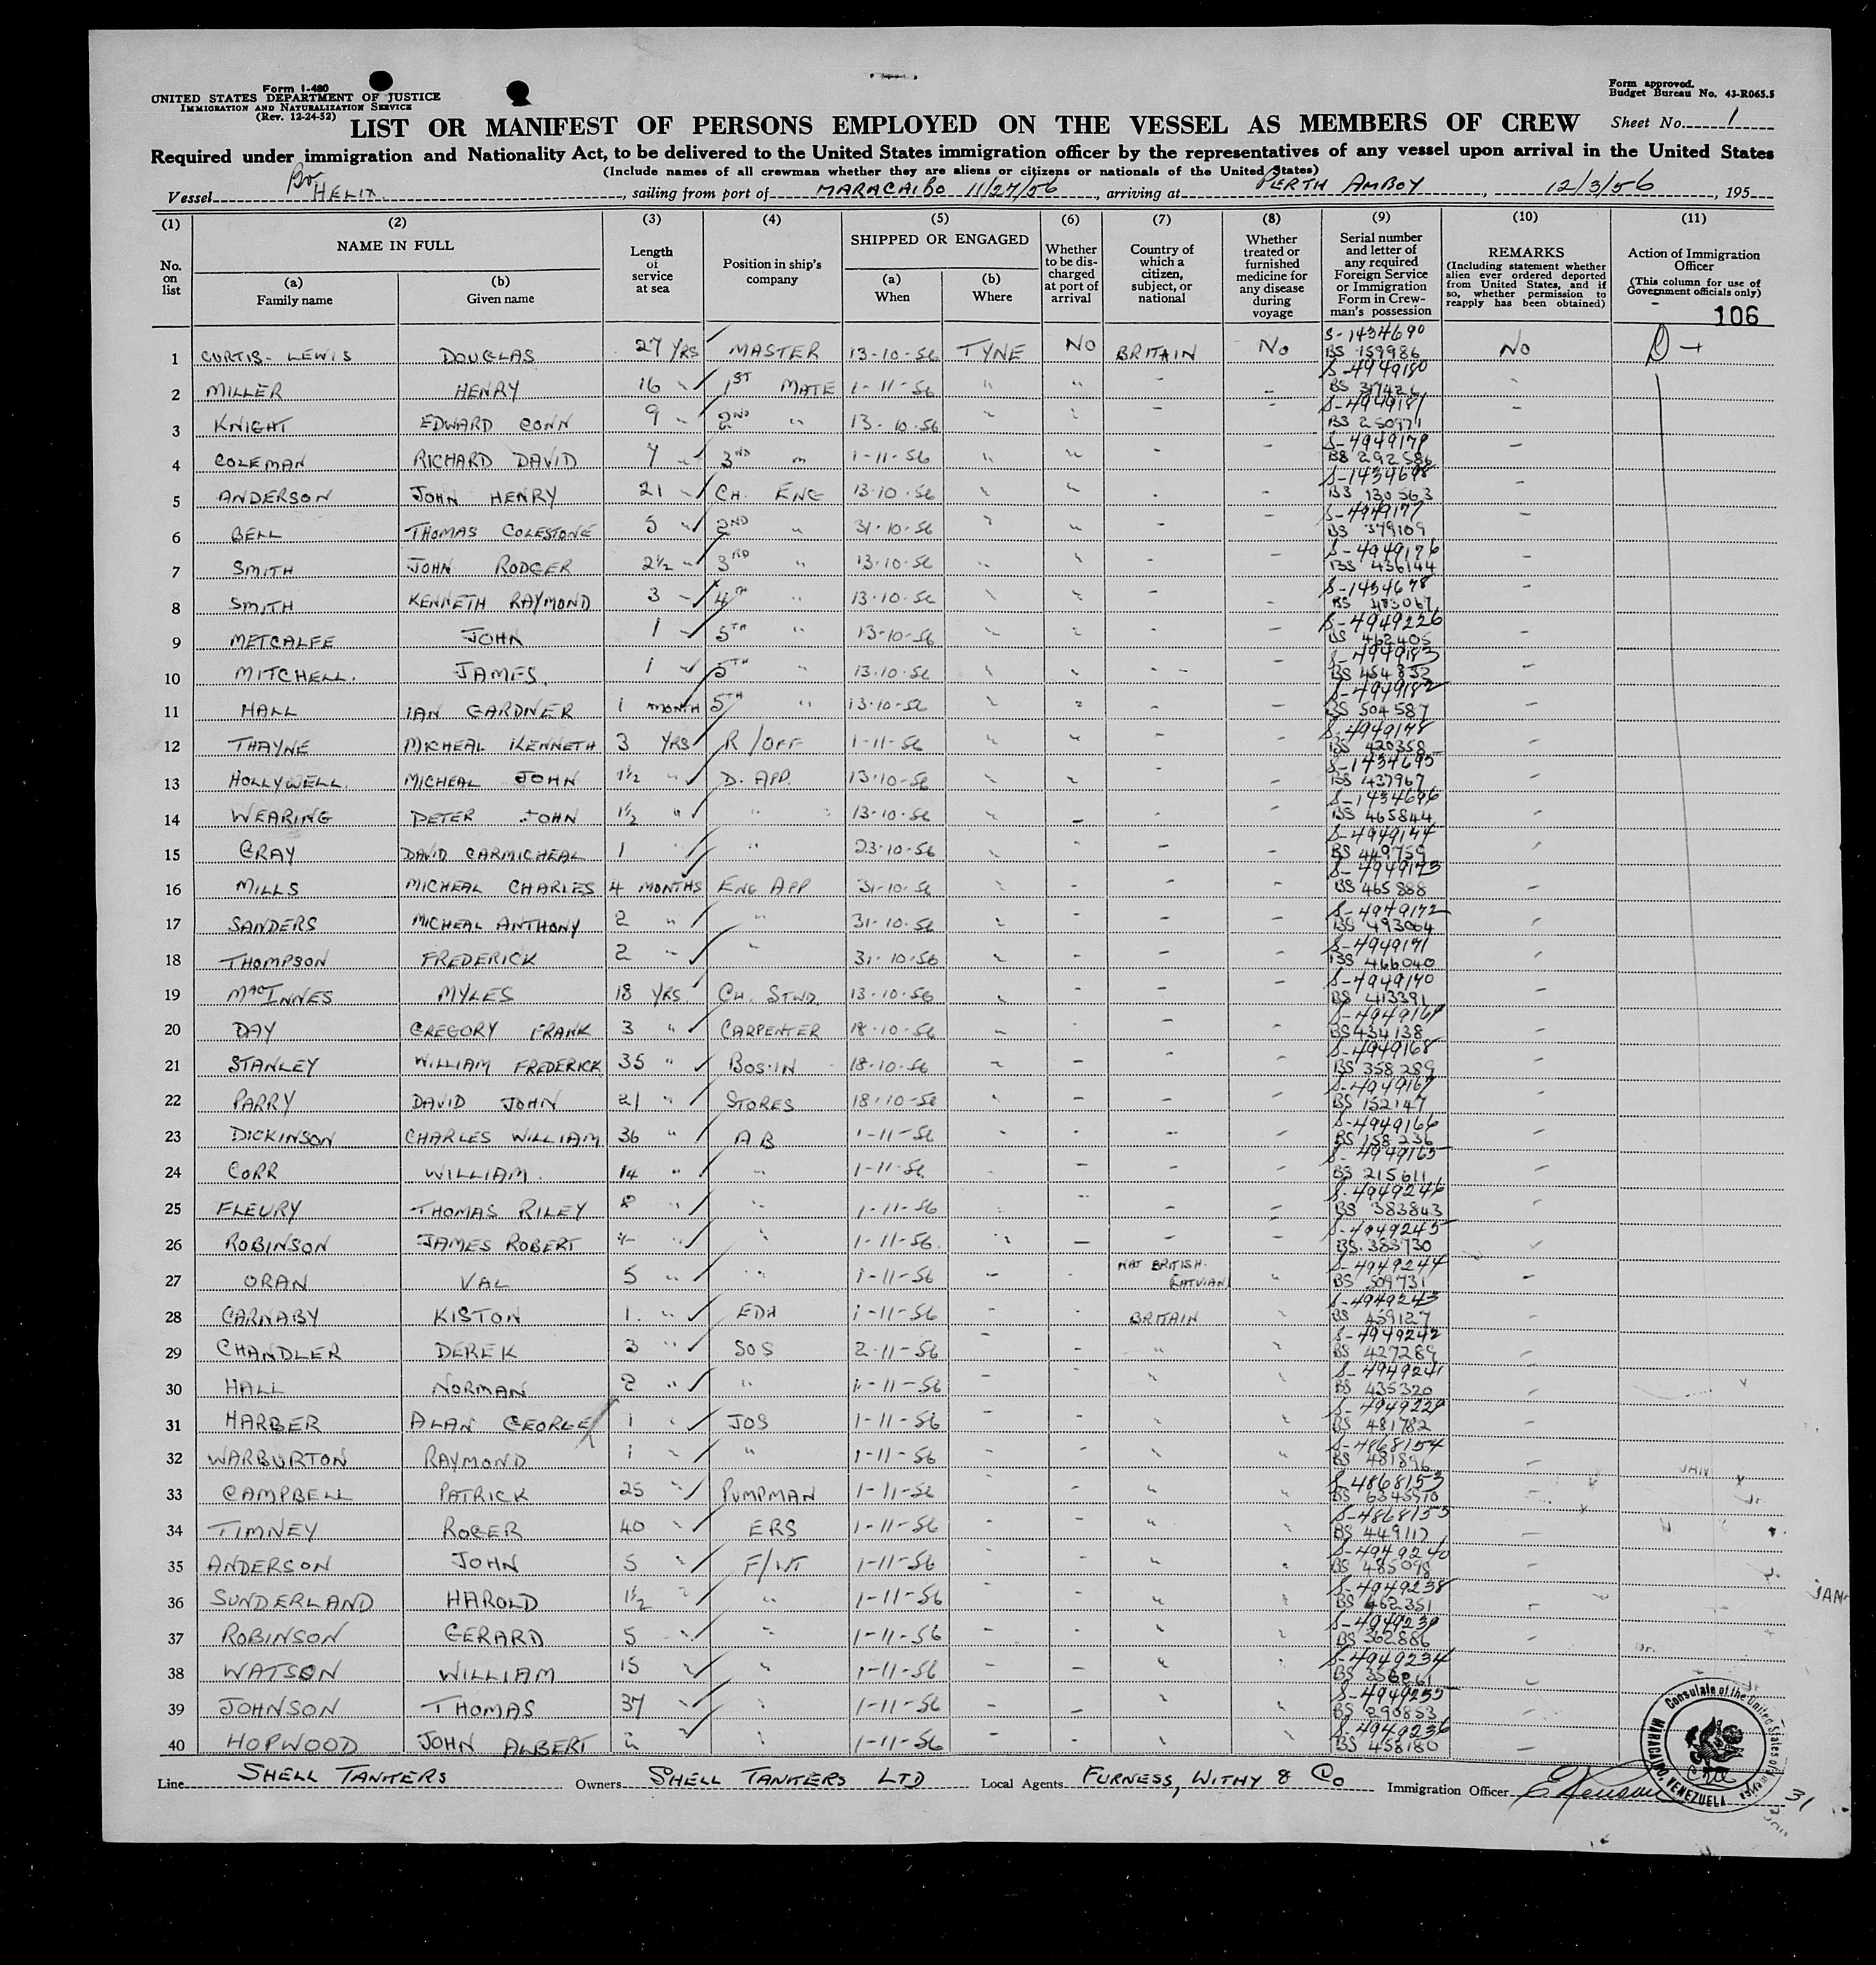 Form I-480
UNITED STATES DEPARTMENT OF JUSTICE
IMMIGRATION AND NATURALIZATION SERVICE
(Rev. 12-24-52)
Form approved.
Budget Bureau No. 43-R065.5
LIST OR MANIFEST OF PERSONS EMPLOYED ON THE VESSEL AS MEMBERS OF CREW Sheet No. 1
Required under immigration and Nationality Act, to be delivered to the United States immigration officer by the representatives of any vessel upon arrival in the United States
(Include names of all crewman whether they are aliens or citizens or nationals of the United States)
Vessel Br HELIX, sailing from port of MARACAIBO 11/27/56, arriving at PERTH AMBOY, 12/3/56, 195
(1) (2) (3) (4) (5) (6) (7) (8) (9) (10) (11)
No. on list
NAME IN FULL
(a) Family name
(b) Given name
Length of service at sea
Position in ship's company
SHIPPED OR ENGAGED
(a) When
(b) Where
Whether to be discharged at port of arrival
Country of which a citizen, subject, or national
Whether treated or furnished medicine for any disease during voyage
Serial number and letter of any required Foreign Service or Immigration Form in Crewman's possession
REMARKS
(Including statement whether alien ever ordered deported from United States, and if so, whether permission to reapply has been obtained)
Action of Immigration Officer
(This column for use of Government officials only)
106
1 CURTIS-LEWIS DOUGLAS 27 YRS MASTER 13-10-56 TYNE NO BRITAIN NO S-1434690 BS 159986 NO
2 MILLER HENRY 16 " 1ST MATE 1-11-56 " " S-4949180 BS
3 KNIGHT EDWARD CONN 9 " 2ND " 13-10-56 " " S-4949181 BS 250971
4 COLEMAN RICHARD DAVID 7 " 3RD " 1-11-56 " " S-4949179 BS 292586
5 ANDERSON JOHN HENRY 21 " CH. ENG 13-10-56 " " S-1434698 BS 130563
6 BELL THOMAS COLESTONE 5 " 2ND " 31-10-56 " " S-4949177 BS 379109
7 SMITH JOHN RODGER 2½ " 3RD " 13-10-56 " " S-4949176 BS 436144
8 SMITH KENNETH RAYMOND 3 " 4TH " 13-10-56 " " S-1434678 BS
9 METCALFE JOHN 1 " 5TH " 13-10-56 " " S-4949226 BS 462405
10 MITCHELL. JAMES. 1 " 5TH " 13-10-56 " " S-4949183 BS 454832
11 HALL IAN GARDNER 1 MONTH 5TH " 13-10-56 " " S-4949182 BS 504587
12 THAYNE MICHEAL KENNETH 3 YRS R/OFF 1-11-56 " " S-4949178 BS 420358
13 HOLLYWELL. MICHEAL JOHN 1½ " D. APP. 13-10-56 " " S-1434695 BS 437967
14 WEARING PETER JOHN 1½ " " 13-10-56 " S-1434696 BS 465844
15 GRAY DAVID CARMICHEAL 1 " " 23-10-56 " BS 449759
16 MILLS MICHEAL CHARLES 4 MONTHS ENG APP 31-10-56 " S-4949173 BS 465888
17 SANDERS MICHEAL ANTHONY 2 " " 31-10-56 " S-4949172 BS 493064
18 THOMPSON FREDERICK 2 " " 31-10-56 " S-4949171 BS 466040
19 MacINNES MYLES 18 YRS CH. STWD. 13-10-56 " S-4949170 BS 413391
20 DAY GREGORY FRANK 3 " CARPENTER 18-10-56 " S-4949169 BS 434138
21 STANLEY WILLIAM FREDERICK 35 " BOS'IN 18-10-56 " S-4949168 BS 358289
22 PARRY DAVID JOHN 21 " STORES 18-10-56 " S-4949167 BS 152147
23 DICKINSON CHARLES WILLIAM 36 " AB 1-11-56 " S-4949166 BS 158236
24 CORR WILLIAM. 14 " " 1-11-56 S-4949165 BS 215611
25 FLEURY THOMAS RILEY " " 1-11-56 S-4949246 BS 383843
26 ROBINSON JAMES ROBERT " " 1-11-56. S-4949245 BS. 383730
27 ORAN VAL 5 " " 1-11-56 NAT BRITISH. (LATVIAN) S-4949244 BS 509731
28 CARNABY KISTON 1. " EDH 1-11-56 BRITAIN S-4949243 BS 459127
29 CHANDLER DEREK 3 " SOS 2-11-56 " S-4949242 BS 427289
30 HALL NORMAN 2 " " 1-11-56 " S-4949241 BS 435320
31 HARBER ALAN GEORGE 1 " JOS 1-11-56 " S-4949229 BS 481782
32 WARBURTON RAYMOND 1 " " 1-11-56 " S-4868154 BS 481896
33 CAMPBELL PATRICK 25 " PUMPMAN 1-11-56 " S-4868153 BS
34 TIMNEY ROGER 40 " ERS 1-11-56 " S-4868155 BS 449117
35 ANDERSON JOHN 5 " 1-11-56 " S-4949240 BS 485098
36 SUNDERLAND HAROLD 1½ " " 1-11-56 " S-4949238 BS 462351
37 ROBINSON GERARD 5 " " 1-11-56 " S-4949239 BS 362886
38 WATSON WILLIAM 15 " " 1-11-56 " S-4949234 BS
39 JOHNSON THOMAS 37 " " 1-11-56 " S-4949235 BS 290853
40 HOPWOOD JOHN ALBERT " " 1-11-56 " S-4949236 BS 458180
Line SHELL TANKERS Owners SHELL TANKERS LTD Local Agents FURNESS, WITHY & Co Immigration Officer
Consulate of the United States of America
MARACAIBO, VENEZUELA
31
JAN